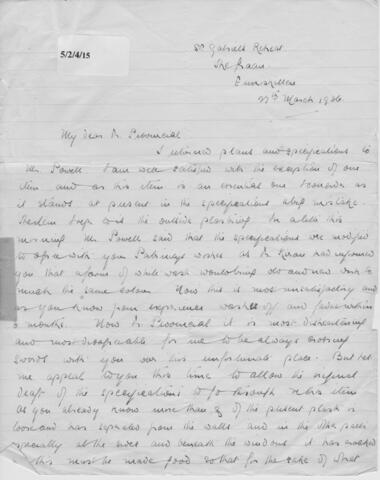 5/2/4/15
St Gabriel's Retreat
The Graan
Enniskillen
27th March 1926.
My dear Fr Provincial
I returned plans and specifications to
Mr Powell. I am well satisfied with the exception of one
item and as this item is an essential one I consider as
it stands at present in the specifications a big mistake.
the outside plastering. In a letter this
morning Mr Powell said that the specifications were modified
to agree with your Paternity's wishes as Fr Kieran had informed
you that a form of white wash would bring old and new work to
much the same colour. Now this is most unsatisfactory and
as you know from experience washes off and fades within
6 months. Now Fr Provincial it is most disheartening
and most disagreeable for me to be always crossing
swords with you over this unfortunate place. But let
me appeal to you this time to allow the original
draft of the specifications to go through re this item
As you already know more than of the present plaster is
loose and has separated from the walls and in the other parts
specially at the sides and beneath the windows it has cracked
this must be made good so that for the sake of